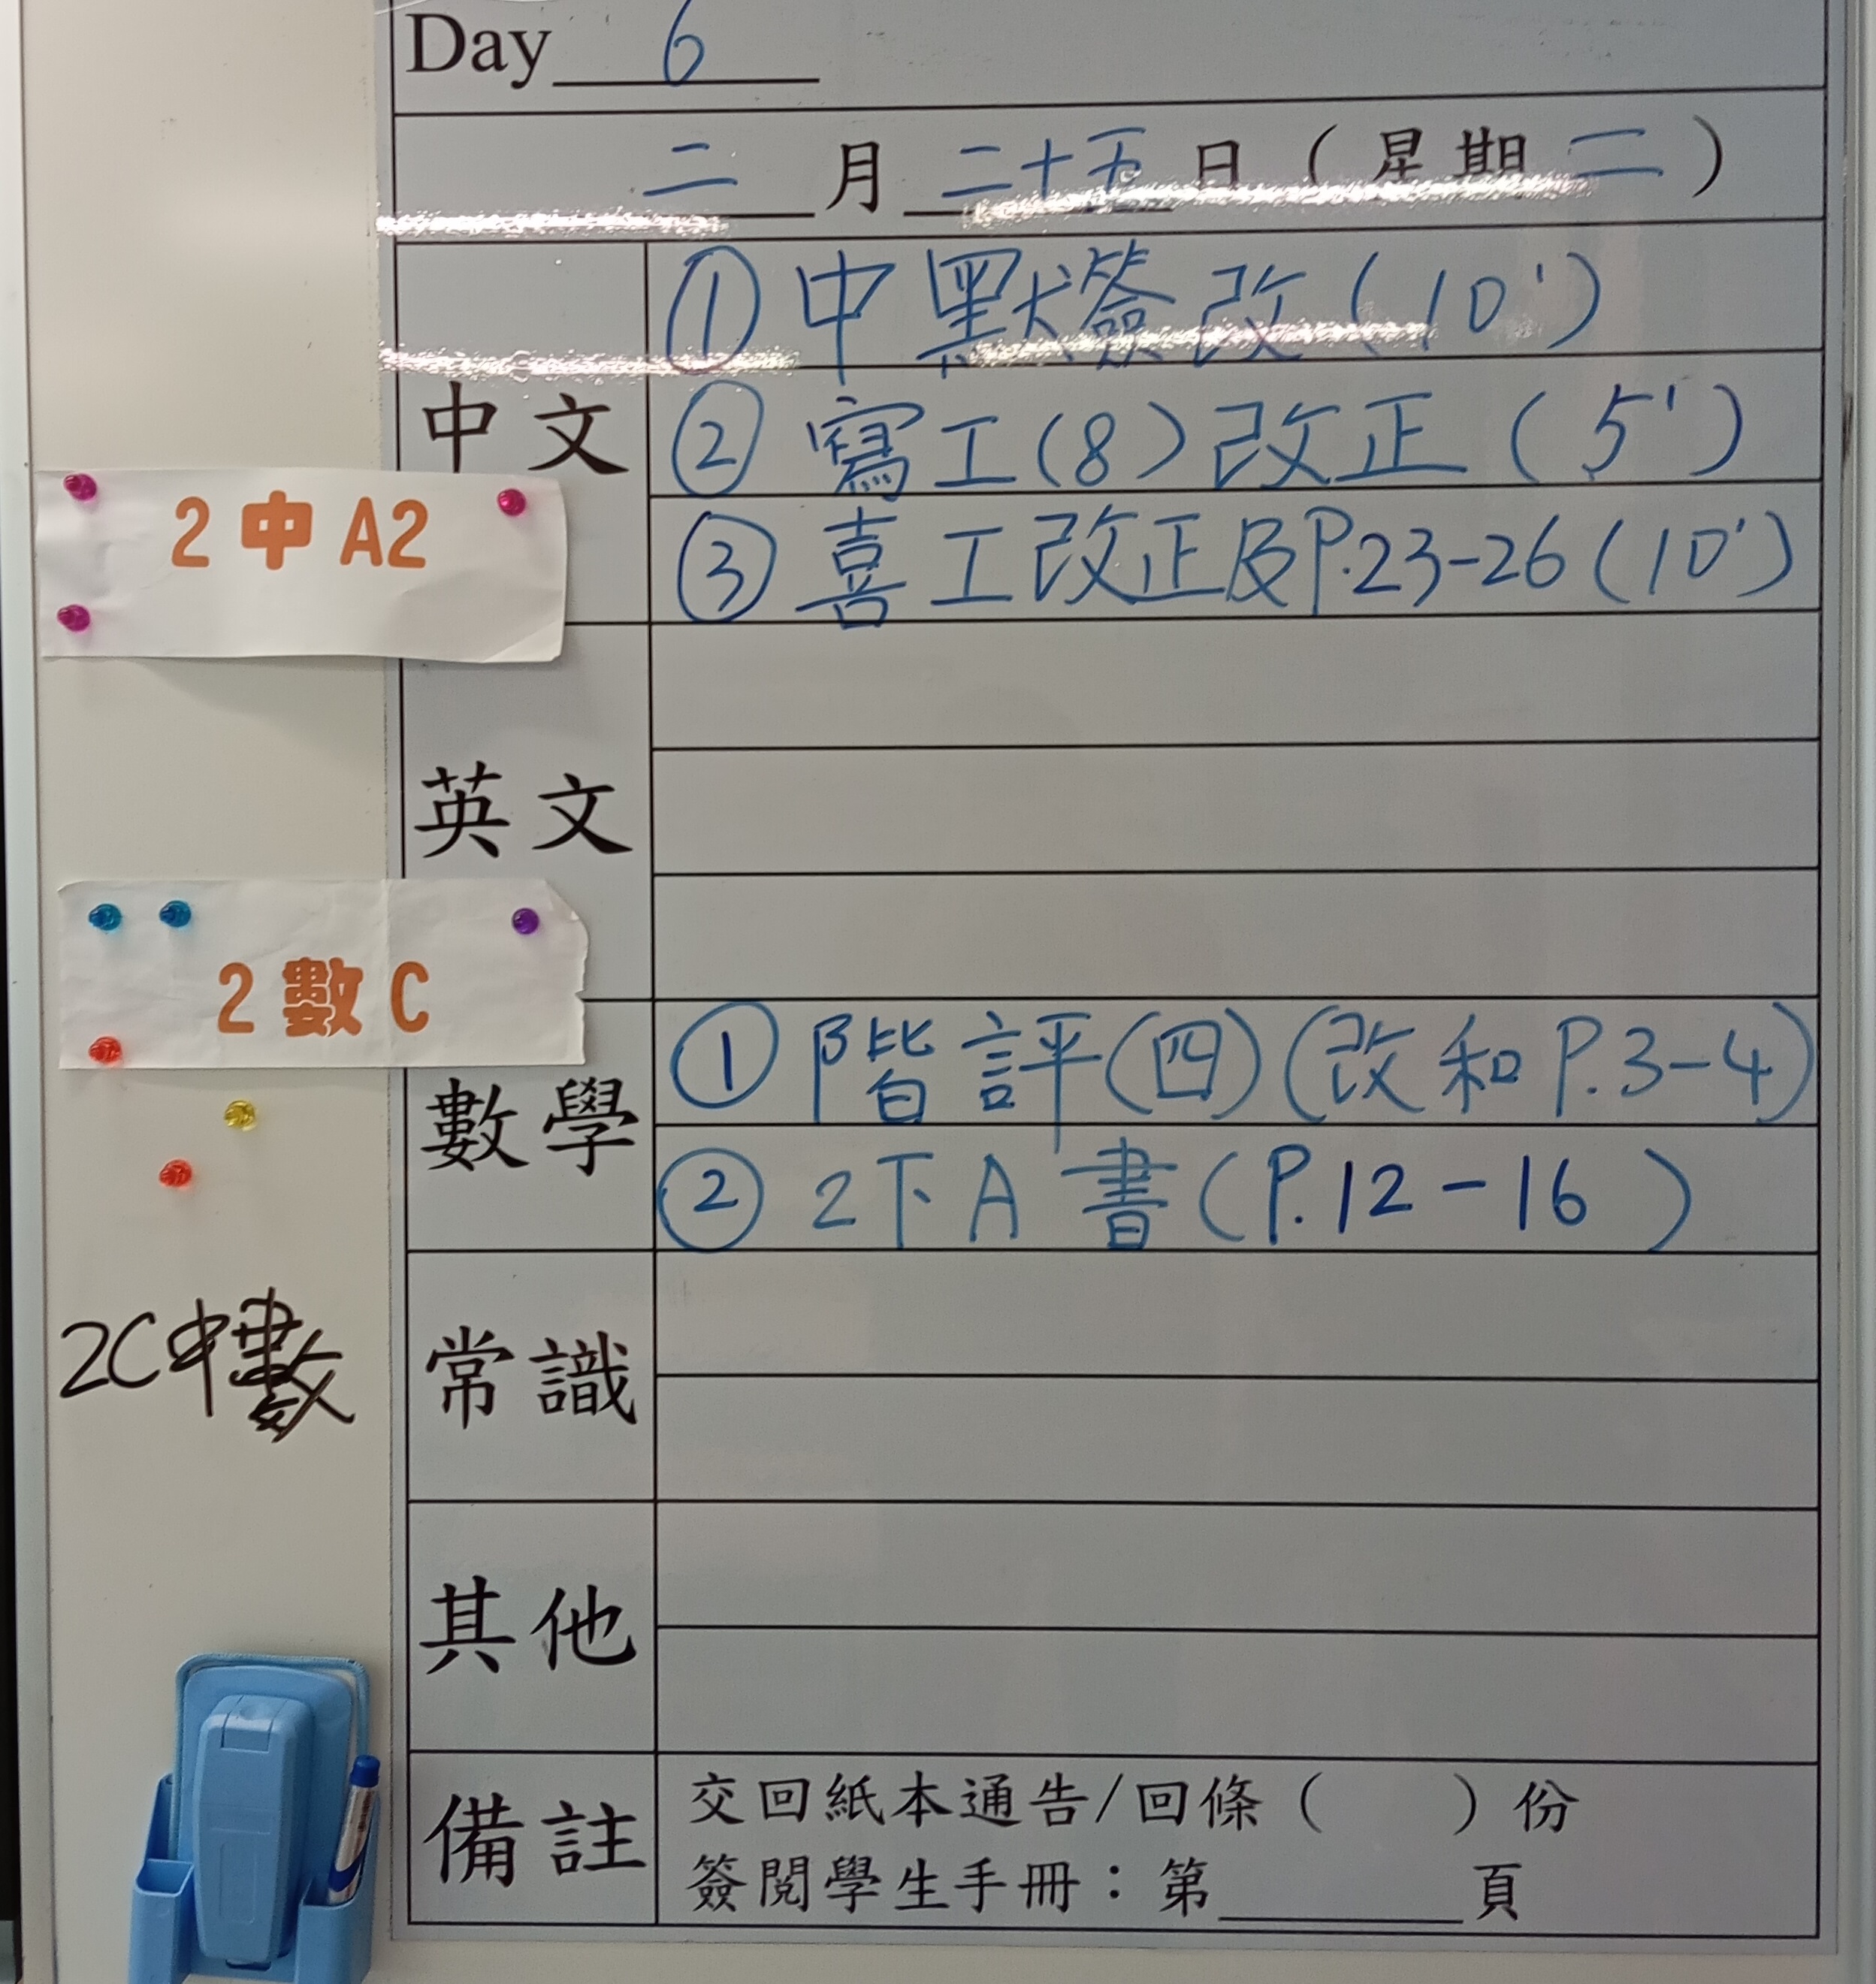 Day 6
二月二十五日（星期二）
中文
① 中默簽改(10')
② 寫工(8)改正(5')
③ 喜工改正及P.23-26(10')
2 中 A2
英文
2 數 C
數學
① 階評(四)(改和P.3-4)
② 2下A書(P.12-16)
2C中數
常識
其他
備註
交回紙本通告/回條（　）份
簽閱學生手冊：第______頁